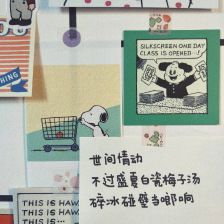 SILKSCREEN ONE DAY
CLASS IS OPENED
世间情动
不过盛夏白瓷梅子汤
碎冰碰壁当啷响
THIS IS HAW
THIS IS HAWA
THIS IS